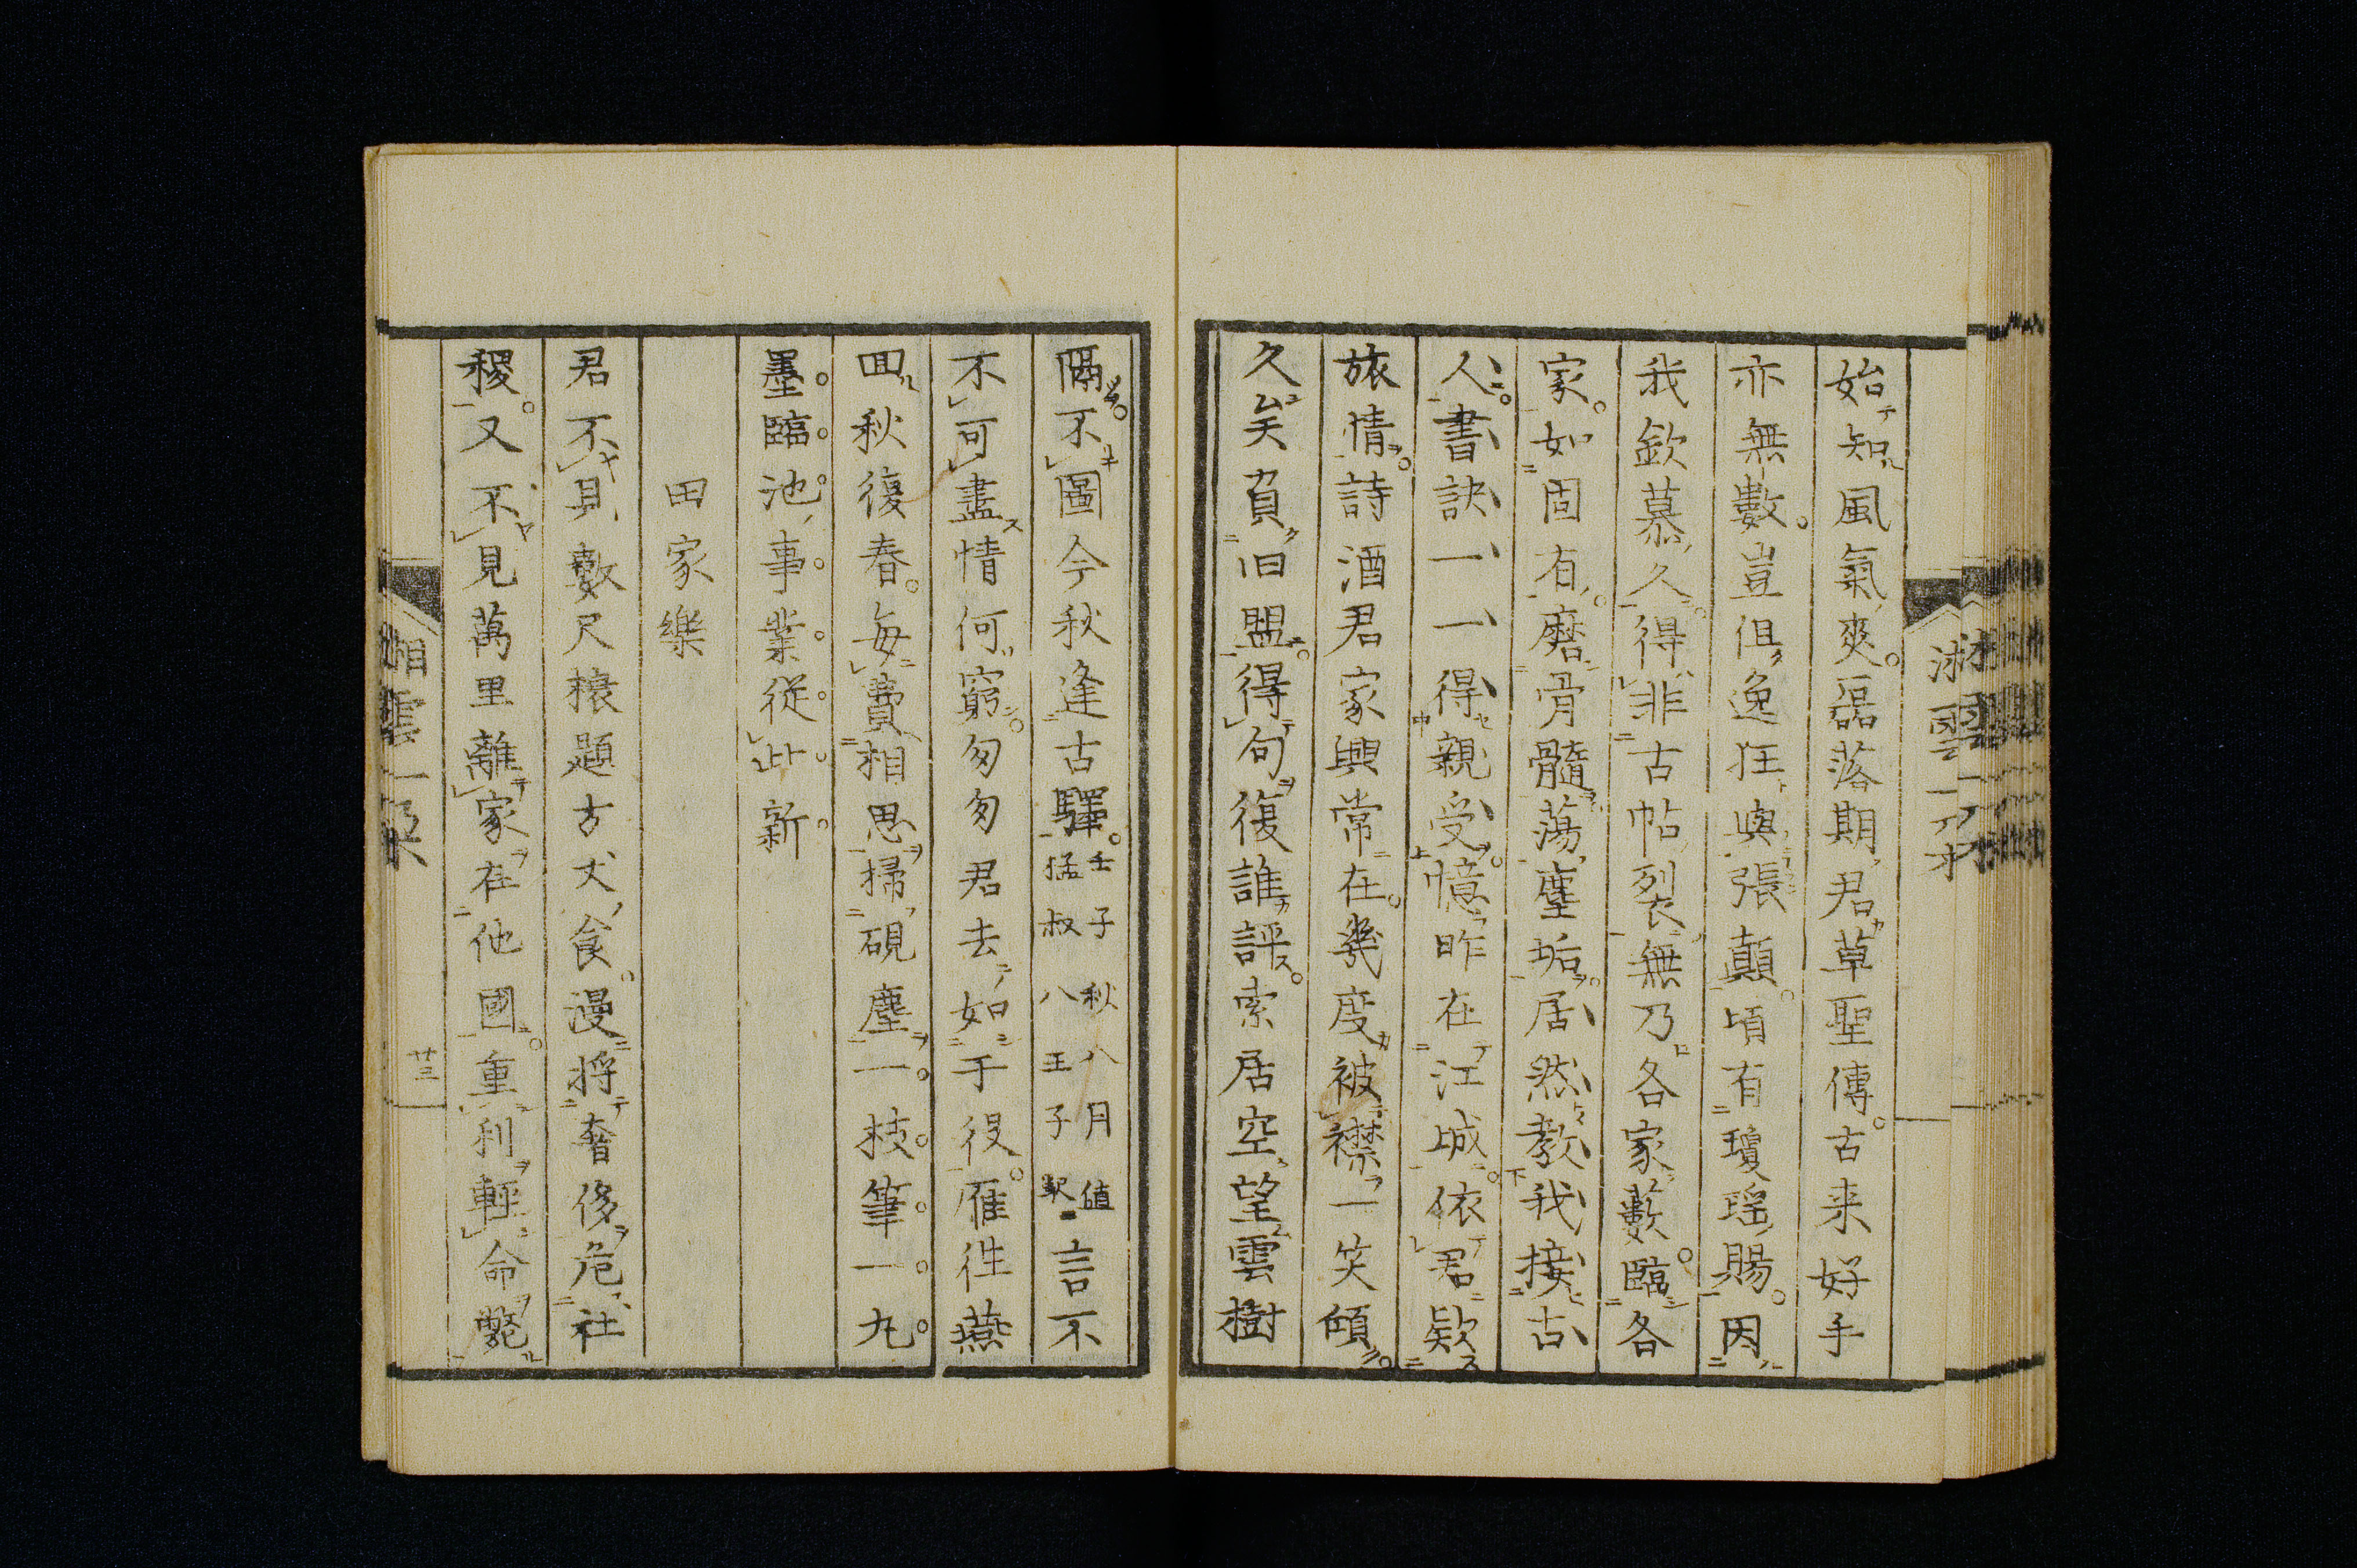 始知風氣爽磊落期君草聖傳古来好手
亦無數豈但逸狂與張顛頃有瓊瑶賜因
我欽慕久得非古帖裂無乃各家藪臨各
家如固有磨骨髓蕩塵垢居然教我接古
人書訣一一得親受憶昨在江城依君欵
旅情詩酒君家興常在幾度被襟一笑傾
久矣負旧盟得句復誰評索居空望雲樹
隔不圖今秋逢古驛壬子秋八月値猛叔八王子駅言不
不可盡情何窮匆匆君去如于役雁徃燕
回秋復春毎費相思掃硯塵一枝筆一丸
墨臨池事業従此新
田家樂
君不見數尺榱題方丈食漫将奢侈危社
稷又不見萬里離家在他國重利輕命斃
廿三